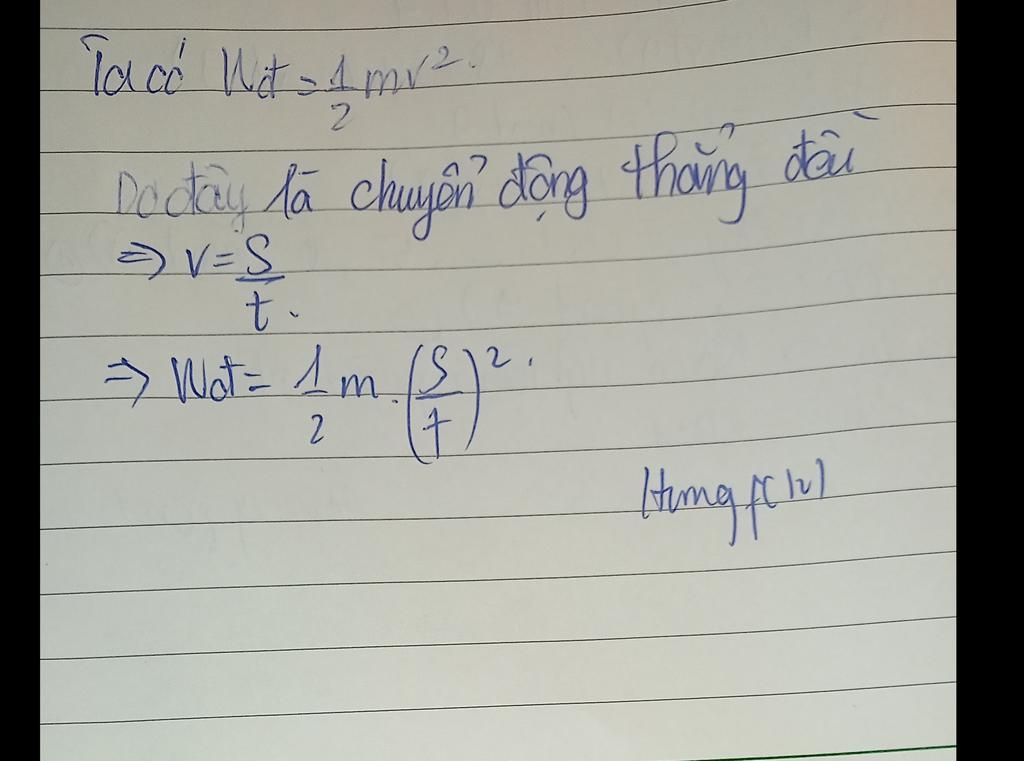 Ta có Wđ = 1/2 mv².
Do đây là chuyển động thẳng đều
=> v = S/t.
=> Wđ = 1/2 m.(S/t)².